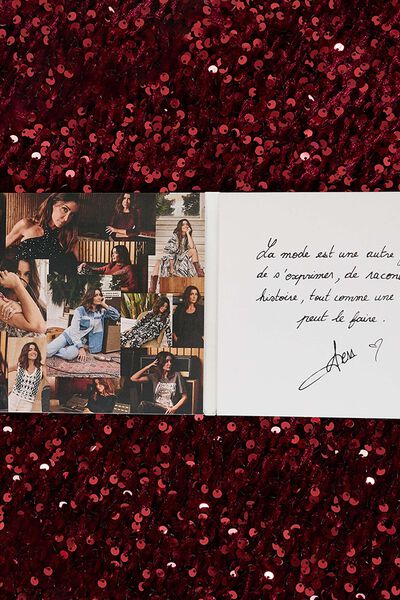 La mode est une autre
de s'exprimer, de
histoire, tout comme une
peut le faire.